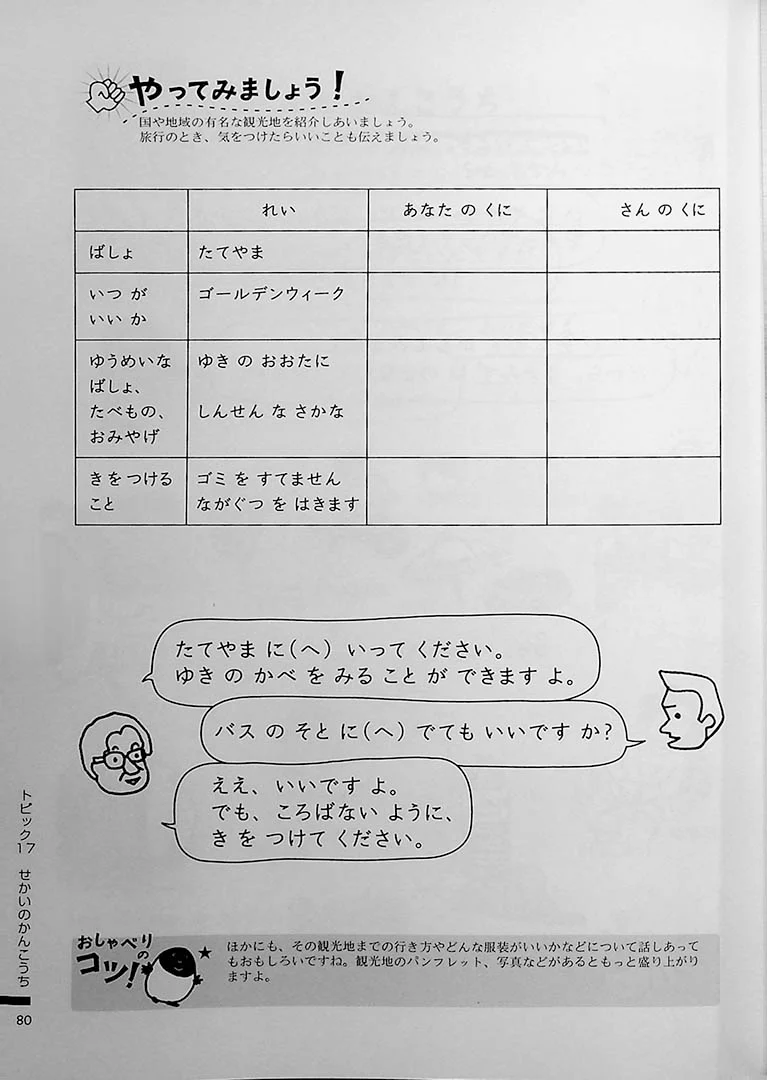 やってみましょう!
国や地域の有名な観光地を紹介しあいましょう。
旅行のとき、気をつけたらいいことも伝えましょう。
れい
あなた の くに
さん の くに
ばしょ
たてやま
いつ が
いい か
ゴールデンウィーク
ゆうめいな
ばしょ、
たべもの、
おみやげ
ゆき の おおたに
しんせん な さかな
き を つける
こと
ゴミ を すてません
ながぐつ を はきます
たてやま に(へ) いって ください。
ゆき の かべ を みる こと が できます よ。
バス の そと に(へ) でても いいです か?
ええ、いいです よ。
でも、ころばない ように、
き を つけて ください。
おしゃべり
の
コツ!
ほかにも、その観光地までの行き方やどんな服装がいいかなどについて話しあって
もおもしろいですね。観光地のパンフレット、写真などがあるともっと盛り上がり
ますよ。
トピック17 せかいのかんこうち
80